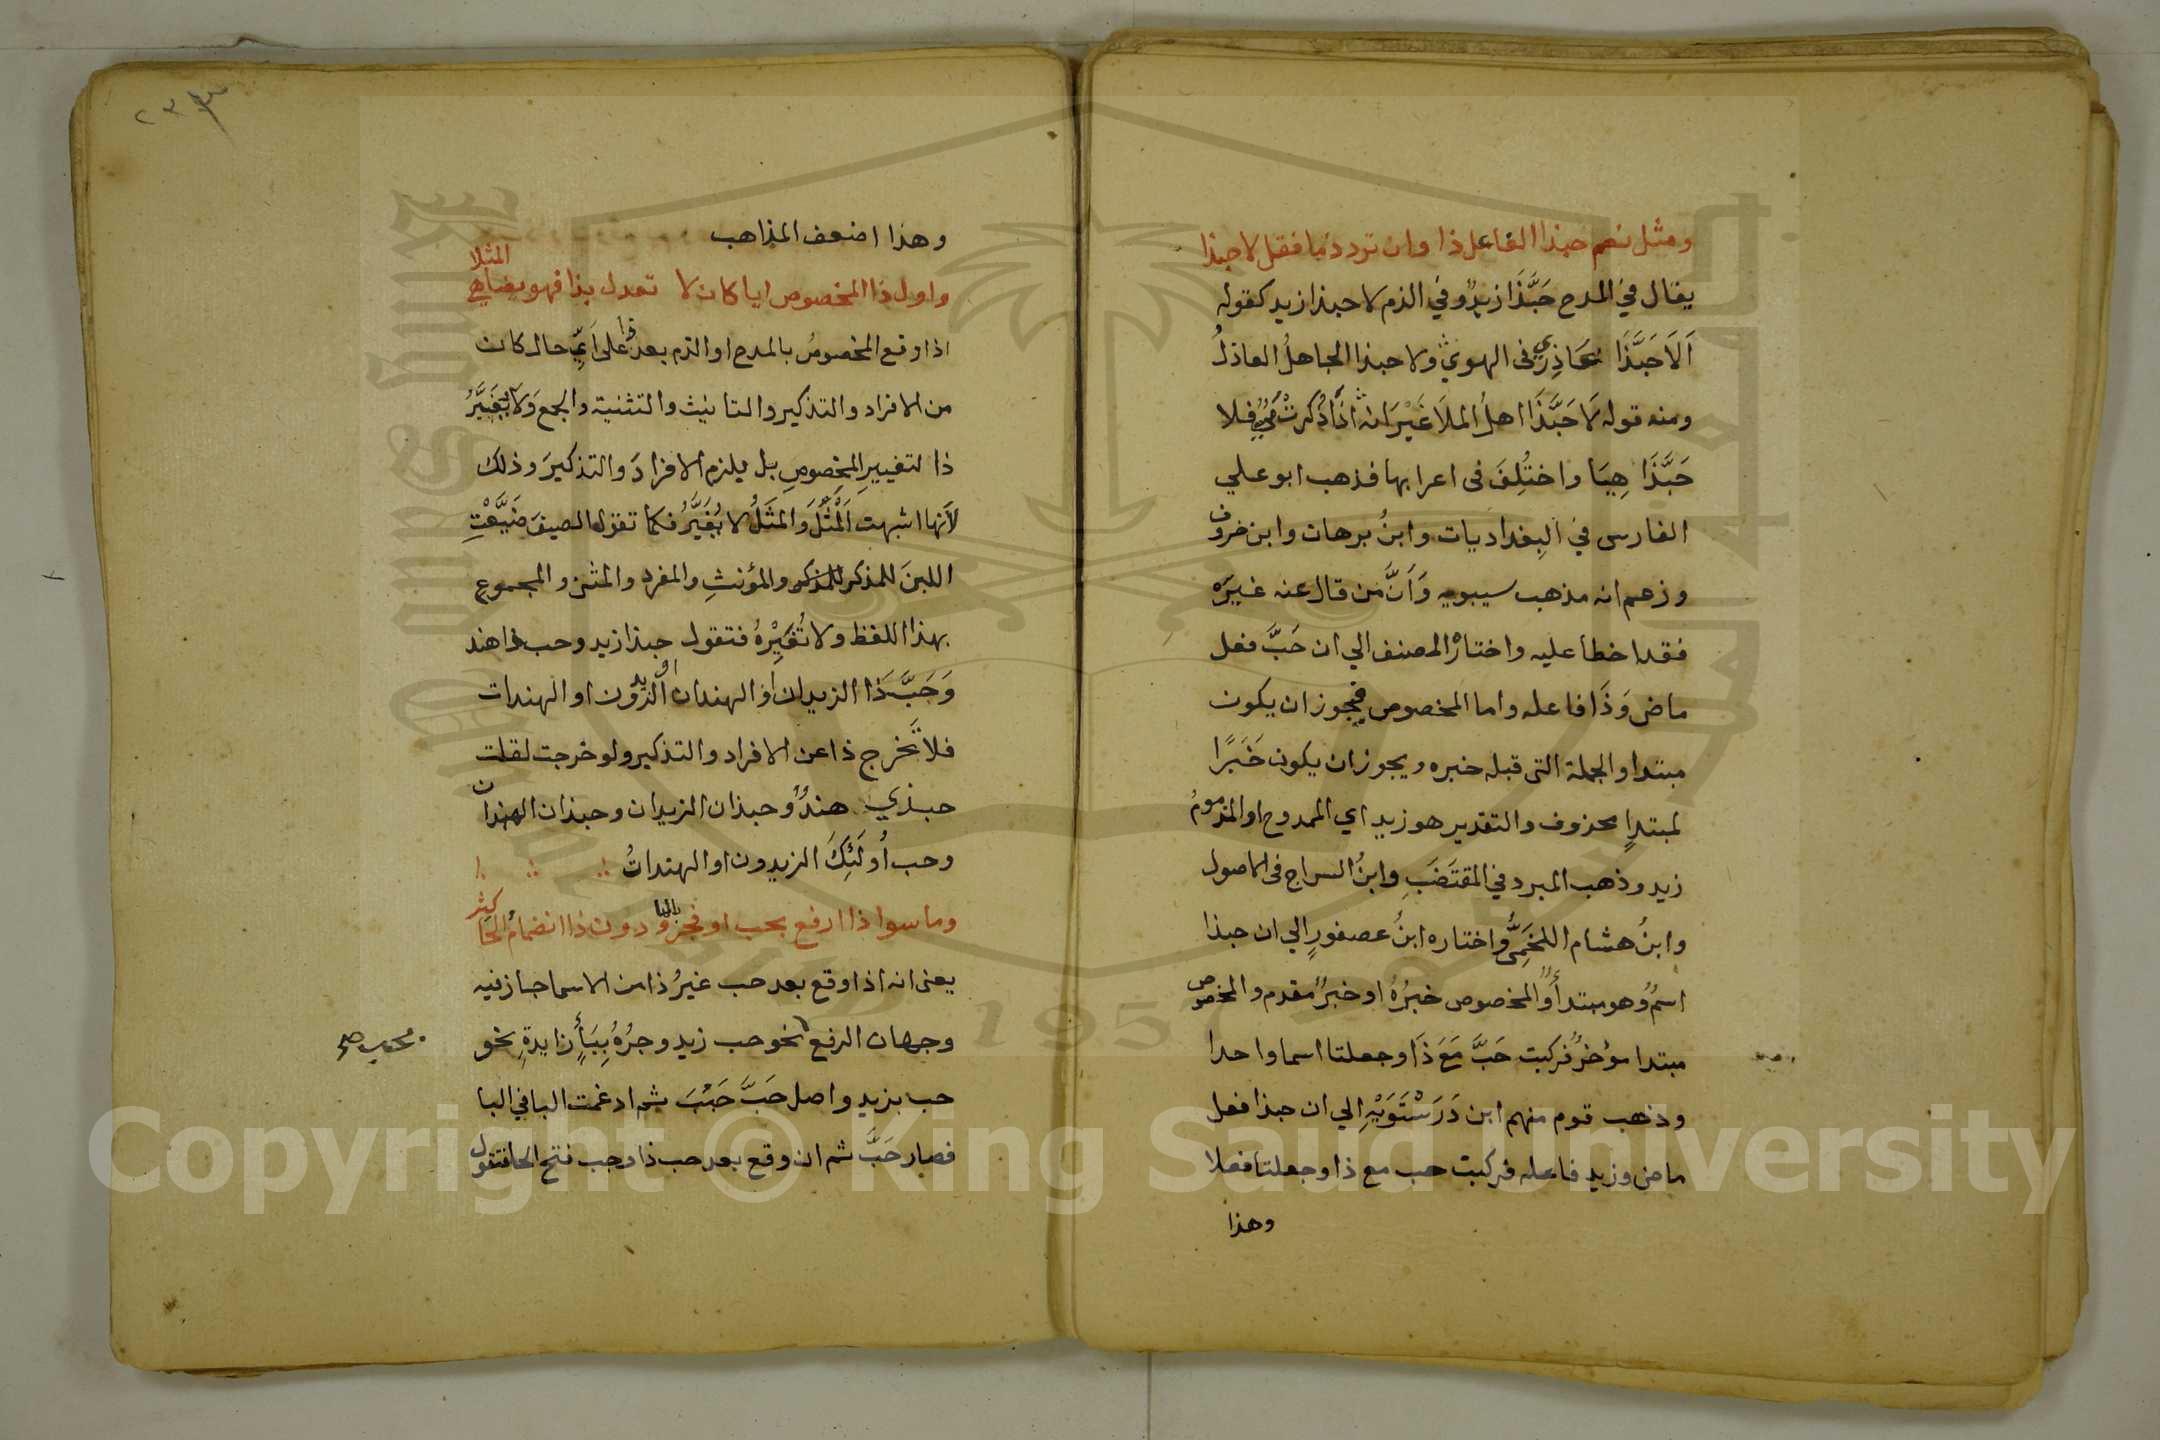 ومثل نعم حبذا الفاعل ذا وان ترد ذما فقل لا حبذا
يقال في المدح حَبَّذَا زيدٌ وفي الذم لا حبذا زيد كقوله
اَلَا حَبَّذَا عَاذِرِي فى الهوي ولا حبذا الجاهلُ العاذلُ
ومنه قوله لَا حَبَّذَا اهلُ المَلَا غَيْرَ انه اذَا ذُكرتْ مَيٌّ فلا
حَبَّذَا هِيَا واختُلِفَ فى اعرابها فذهب ابو علي
الفارسى في البغداديات وابنُ برهان وابن خروف
وزعم انه مذهب سيبويه وَاَنَّ مَن قال عنه غيرَه
فقد اخطا عليه واختارَ المصنف الي ان حَبَّ فعل
ماض وَذَا فاعله واما المخصوص فيجوز ان يكون
مبتدا والجملة التى قبله خبره ويجوز ان يكون خَبَرًا
لمبتدإ محذوف والتقدير هو زيد اي الممدوح او المذمومُ
زيد وذهب المبرد في المقتَضَبِ وابنُ السراج فى الاصول
وابنُ هشام اللخَمِىُّ واختاره ابنُ عصفورٍ الي ان حبذا
اسمٌ وهو مبتدأٌ والمخصوص خبرُهُ او خبرٌ مقدم والمخصوص
مبتدا مؤخرٌ فركبت حَبَّ مَعَ ذَا وجعلتا اسما واحدا
وذهب قوم منهم ابن دَرَسْتَوَيْهِ الي ان حبذا فعل
ماض وزيد فاعله فركبت حب مع ذا وجعلتا فعلا
وهذا
٢٣٣
وهذا اضعف المذاهب
واول ذا المخصوص ايا كان لا تعدل بذا فهو يضاهي المثلا
اذا وقع المخصوصُ بالمدح او الذم بعد ذا على اَيِّ حال كان
من الافراد والتذكير والتانيث والتثنية والجمع وَلَا يُغَيَّرُ
ذا لتغييرِ المخصوصِ بل يلزم الافرادَ والتذكيرَ وذلك
لأنها اشبهت اَلْمَثَلَ وَالمَثَلُ لا يُغَيَّرُ فكما تقول الصيفَ ضَيَّعْتِ
اللبنَ للمذكر للمذكر والمؤنثِ والمفرد والمثنى والمجموع
بهذا اللفظ ولا تُغَيِّرْهُ فتقول حبذا زيد وحب ذا هند
وَحَبَّ ذَا الزيدان او الهندان او الزيدون او الهندات
فلا تَخرج ذا عن الافراد والتذكير ولو خرجت لقلت
حبذي هندٌ وحبذان الزيدان وحبذان الهندان
وحب أُولَئِكَ الزيدون او الهنداتُ
وما سوا ذا ارفع بحب او فجر بالبا ودون ذا انضمامُ الحا كثر
يعنى انه اذا وقع بعد حب غيرُ ذا من الاسما جاز فيه
وجهان الرفع نحو حب زيد وجرُهُ بِبَأٍ زايدةٍ نحو
حب بزيد واصل حَبَّ حَبُبَ ثم ادغمت البا في البا
فصار حَبَّ ثم ان وقع بعد حب ذا وجب فتح الحا فتقول
Copyright © King Saud University
1957